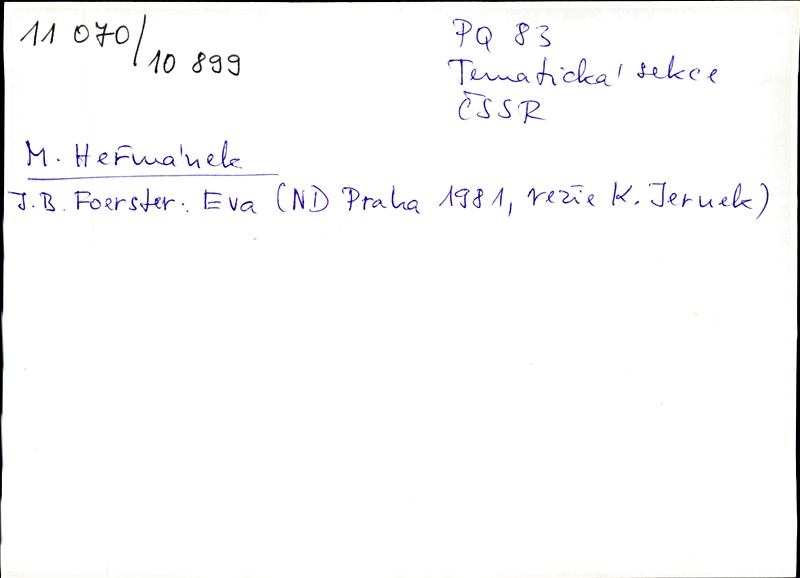 11 070/10 899
PQ 83
Tematická sekce
ČSSR
M. Heřmánek
J.B. Foerster: Eva (ND Praha 1981, režie K. Jernek)